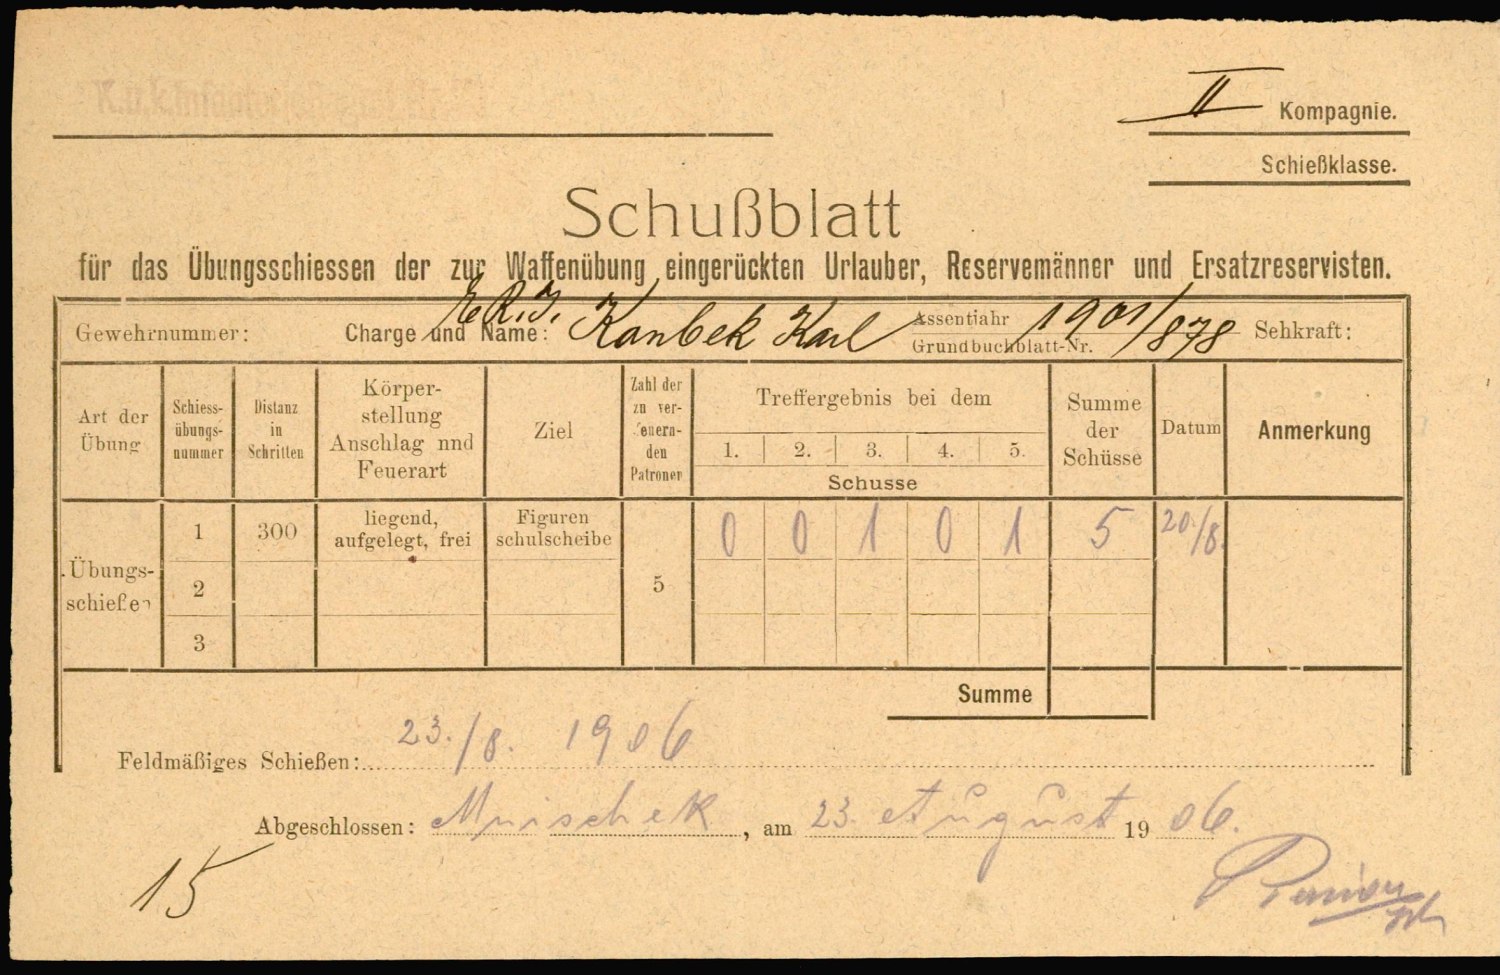 K.u.k. Infanterieregiment
II Kompagnie.
Schießklasse.
Schußblatt
für das Übungsschiessen der zur Waffenübung eingerückten Urlauber, Reservemänner und Ersatzreservisten.
Gewehrnummer: Charge und Name: E.R.I. Kanbek Karl Assentjahr 1901/878 Sehkraft:
Grundbuchblatt-Nr.
Art der Übung
Schiess-übungs-nummer
Distanz in Schritten
Körper-stellung Anschlag nnd Feuerart
Ziel
Zahl der zu ver-feuern-den Patronen
Treffergebnis bei dem
1. 2. 3. 4. 5.
Schusse
Summe der Schüsse
Datum
Anmerkung
Übungs-schießen
1 300 liegend, aufgelegt, frei Figuren schulscheibe 5 0 0 1 0 1 5 20./8.
2
3
Summe
Feldmäßiges Schießen: 23./8. 1906
Abgeschlossen: Mnischek, am 23. August 1906.
15